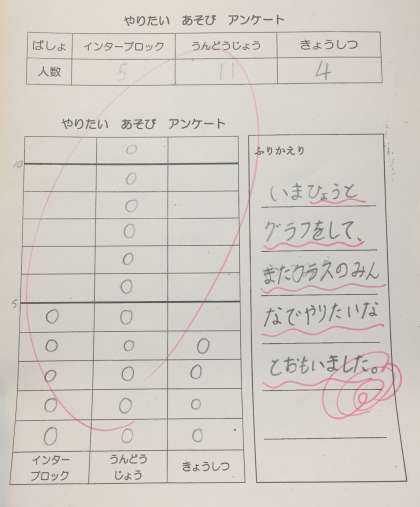 やりたい あそび アンケート
ばしょ インターブロック うんどうじょう きょうしつ
人数 5 11 4
やりたい あそび アンケート
10
5
インター
ブロック
うんどう
じょう
きょうしつ
ふりかえり
いまひょうと
グラフをして、
またクラスのみん
なでやりたいな
とおもいました。